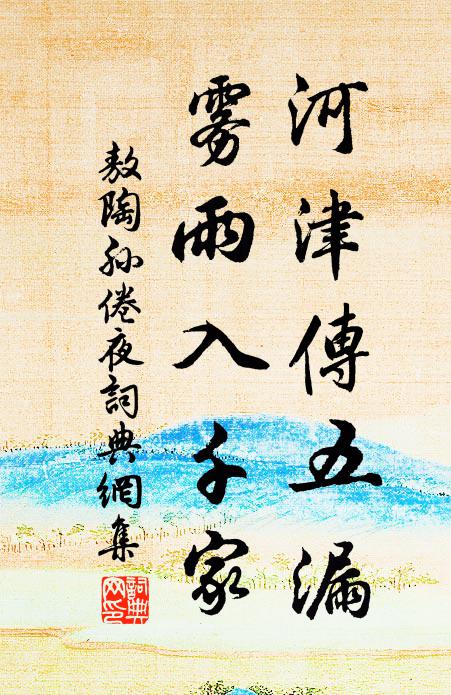 河津傳五漏
雾雨入千家
敖陶孙倦夜詞典網集